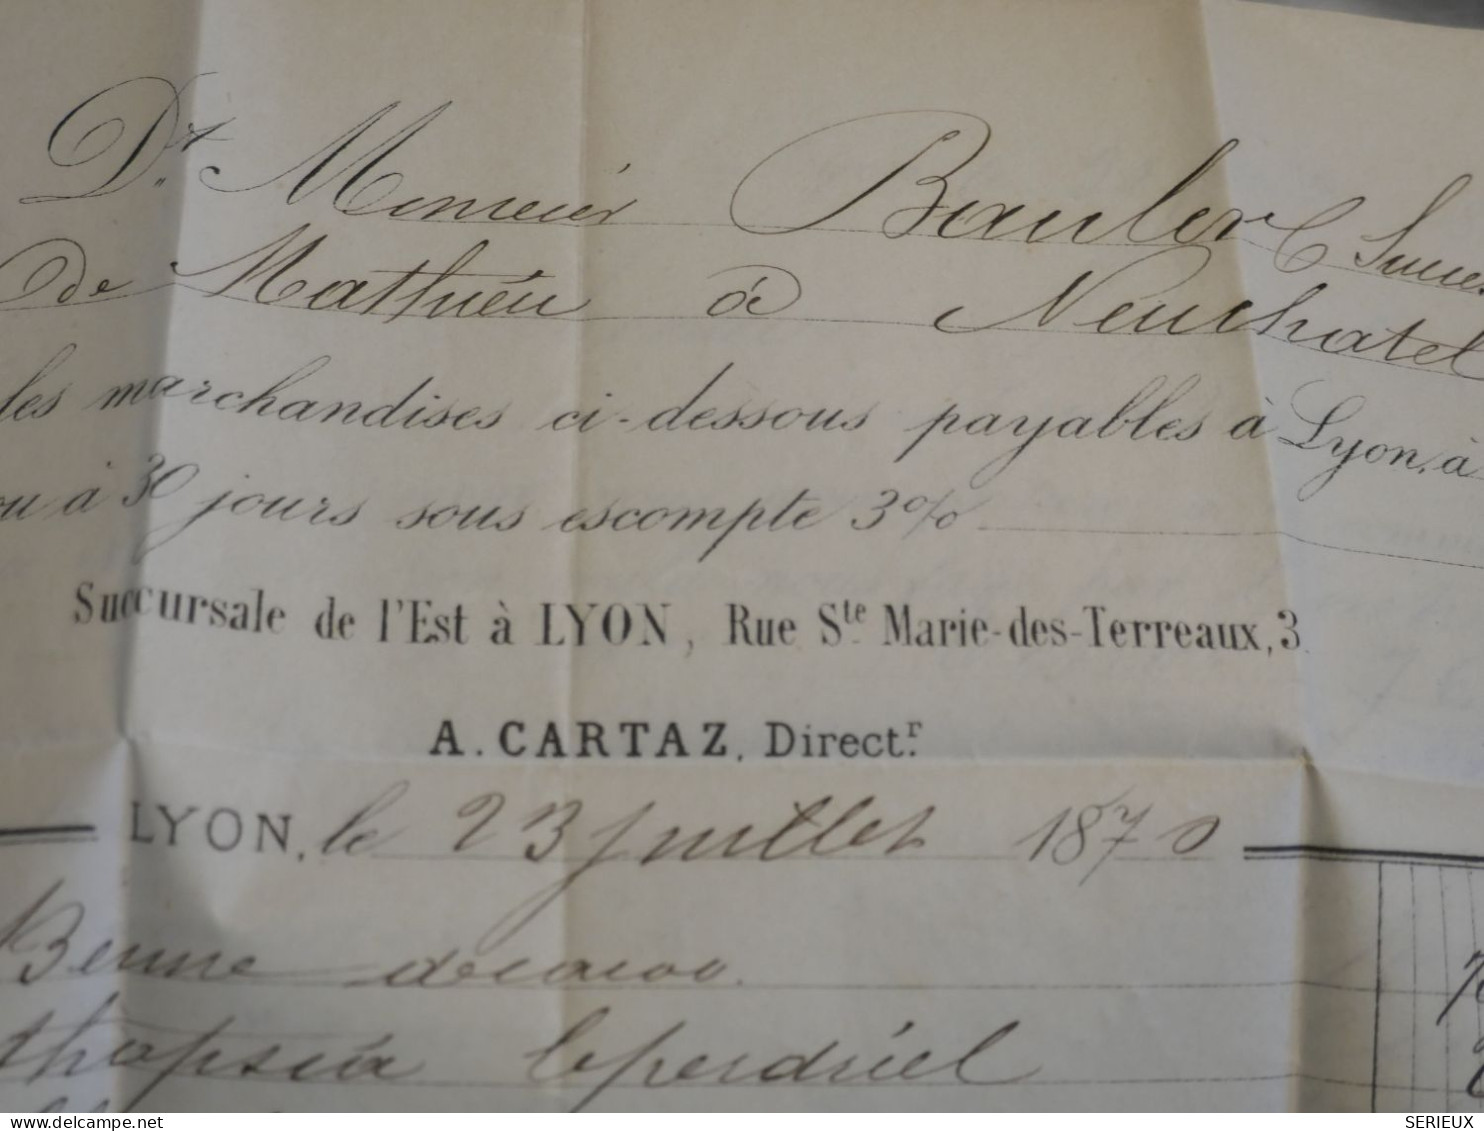 Dt. Monsieur Bauler Succes
de Mathieu à Neuchatel
les marchandises ci-dessous payables à Lyon, à
ou à 30 jours sous escompte 3%
Succursale de l'Est à LYON, Rue Ste Marie-des-Terreaux, 3.
A. CARTAZ, Directr.
LYON, le 23 juillet 1870
Beurre de cacao
thapsia Leperdriel
delcampe.net
SERIEUX